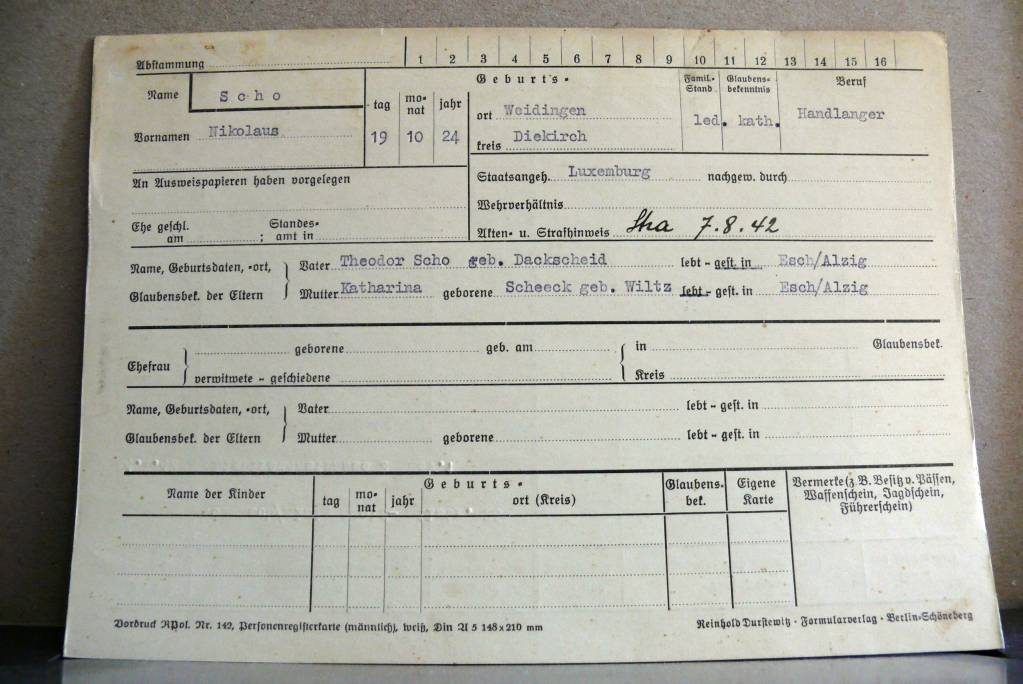 Abstammung 1 2 3 4 5 6 7 8 9 10 11 12 13 14 15 16
Name Scho tag mo-nat jahr Geburts- Famil.-Stand Glaubens-bekenntnis Beruf
Vornamen Nikolaus 19 10 24 ort Weidingen led. kath. Handlanger
kreis Diekirch
An Ausweispapieren haben vorgelegen
Staatsangeh. Luxemburg nachgew. durch
Wehrverhältnis
Ehe geschl. am ; Standes-amt in
Akten- u. Strafhinweis 7.8.42
Name, Geburtsdaten, -ort, Vater Theodor Scho geb. Dackscheid lebt - gest. in Esch/Alzig
Glaubensbek. der Eltern Mutter Katharina geborene Scheeck geb. Wiltz lebt - gest. in Esch/Alzig
Ehefrau geborene geb. am in Glaubensbek.
verwitwete - geschiedene Kreis
Name, Geburtsdaten, -ort, Vater lebt - gest. in
Glaubensbek. der Eltern Mutter geborene lebt - gest. in
Name der Kinder Geburts- Glaubens-bek. Eigene Karte Vermerke (z. B. Besitz v. Pässen,
tag mo-nat jahr ort (Kreis) Waffenschein, Jagdschein,
Führerschein)
Vordruck RPol. Nr. 142, Personenregisterkarte (männlich), weiß, Din A 5 148x210 mm Reinhold Durstewitz · Formularverlag · Berlin-Schöneberg